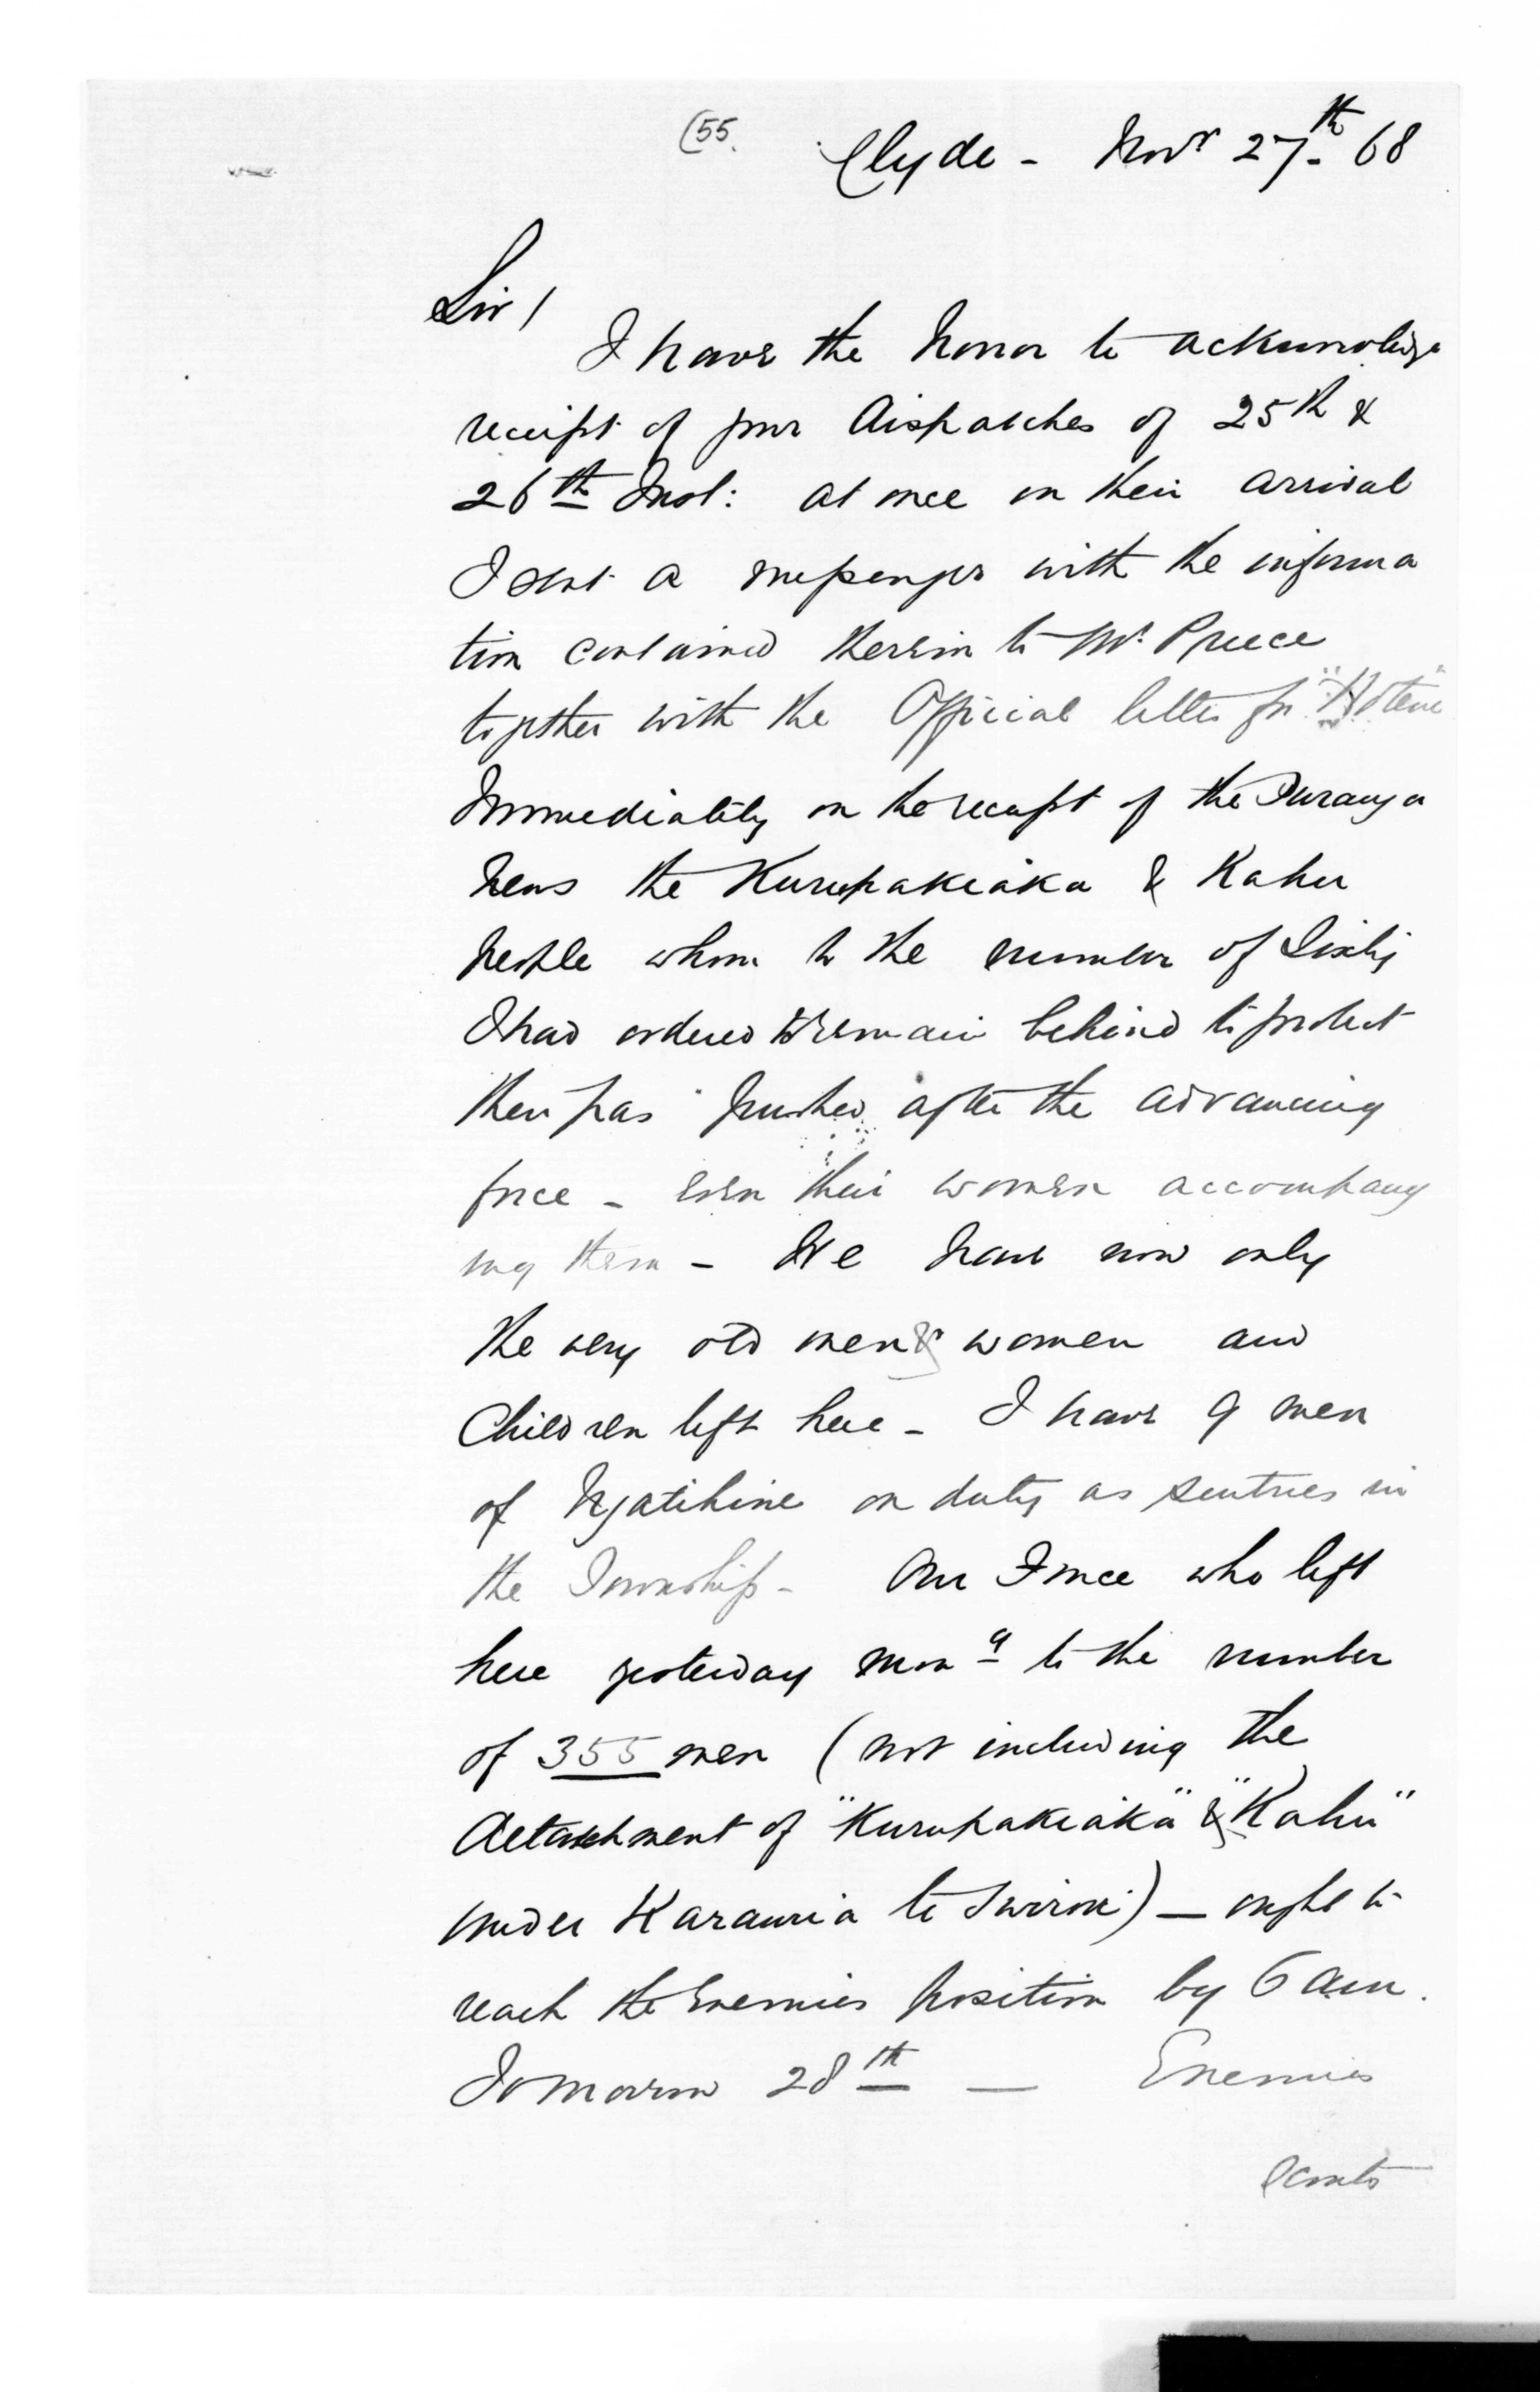 (55.
Clyde - Novr 27th 68
Sir/
I have the honor to acknowledge
receipt of your dispatches of 25th &
26th Inst: at once on their arrival
I sent a messenger with the informa
tion contained therein to Mr. Preece
together with the Official letter for "Hotene"
Immediately on the receipt of the Turanga
news the Kurupakiaka & Kahu
people whom to the number of Sixty
I had ordered to remain behind to protect
their pas rushed after the advancing
force - even their women accompany
ing them - We have now only
the very old men & women and
Children left here - I have 9 men
of Ngatihine on duty as sentries in
the Township - Our Force who left
here yesterday morng to the number
of 355 men (not including the
detachment of "Kurupakiaka" & "Kahu"
under Karauria to Iwirori) - ought to
reach the Enemies position by 6 am.
Tomorrow 28th — Enemies
scouts